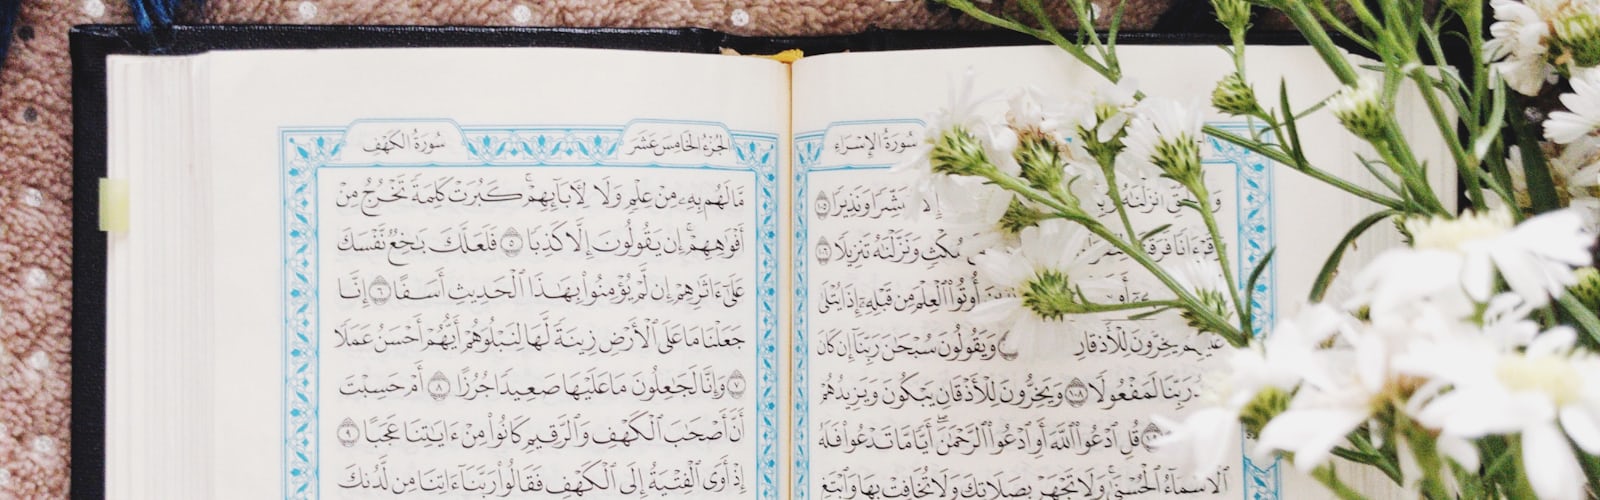 سُورَةُ الإِسْرَاءِ
أَنزَلْنَٰهُ وَنَذِيرًا ١٠٥
فَرَقْنَٰهُ مُكْثٍ وَنَزَّلْنَٰهُ تَنزِيلًا ١٠٦
أُوتُوا۟ ٱلْعِلْمَ مِن قَبْلِهِۦٓ إِذَا يُتْلَىٰ
يَخِرُّونَ لِلْأَذْقَانِ وَيَقُولُونَ سُبْحَٰنَ رَبِّنَآ إِن كَانَ
رَبِّنَا لَمَفْعُولًا ١٠٨ وَيَخِرُّونَ لِلْأَذْقَانِ يَبْكُونَ وَيَزِيدُهُمْ
قُلِ ٱدْعُوا۟ ٱللَّهَ أَوِ ٱدْعُوا۟ ٱلرَّحْمَٰنَ ۖ أَيًّا مَّا تَدْعُوا۟ فَلَهُ
ٱلْأَسْمَآءُ ٱلْحُسْنَىٰ ۚ وَلَا تَجْهَرْ بِصَلَاتِكَ وَلَا تُخَافِتْ بِهَا وَٱبْتَغِ
الجُزْءُ الخَامِسَ عَشَرَ
سُورَةُ الكَهْفِ
مَّا لَهُم بِهِۦ مِنْ عِلْمٍ وَلَا لِأٓبَآئِهِمْ ۚ كَبُرَتْ كَلِمَةً تَخْرُجُ مِنْ
أَفْوَٰهِهِمْ ۚ إِن يَقُولُونَ إِلَّا كَذِبًا ٥ فَلَعَلَّكَ بَٰخِعٌ نَّفْسَكَ
عَلَىٰٓ ءَاثَٰرِهِمْ إِن لَّمْ يُؤْمِنُوا۟ بِهَٰذَا ٱلْحَدِيثِ أَسَفًا ٦ إِنَّا
جَعَلْنَا مَا عَلَى ٱلْأَرْضِ زِينَةً لَّهَا لِنَبْلُوَهُمْ أَيُّهُمْ أَحْسَنُ عَمَلًا
٧ وَإِنَّا لَجَٰعِلُونَ مَا عَلَيْهَا صَعِيدًا جُرُزًا ٨ أَمْ حَسِبْتَ
أَنَّ أَصْحَٰبَ ٱلْكَهْفِ وَٱلرَّقِيمِ كَانُوا۟ مِنْ ءَايَٰتِنَا عَجَبًا ٩
إِذْ أَوَى ٱلْفِتْيَةُ إِلَى ٱلْكَهْفِ فَقَالُوا۟ رَبَّنَآ ءَاتِنَا مِن لَّدُنكَ